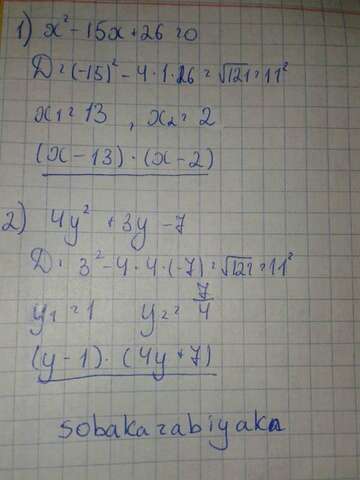 1) x² - 15x + 26 = 0
D = (-15)² - 4 · 1 · 26 = √121 = 11²
x₁ = 13 , x₂ = 2
(x - 13) · (x - 2)
2) 4y² + 3y - 7
D = 3² - 4 · 4 · (-7) = √121 = 11²
y₁ = 1 y₂ = 7/4
(y - 1) · (4y + 7)
sobakazabiyaka